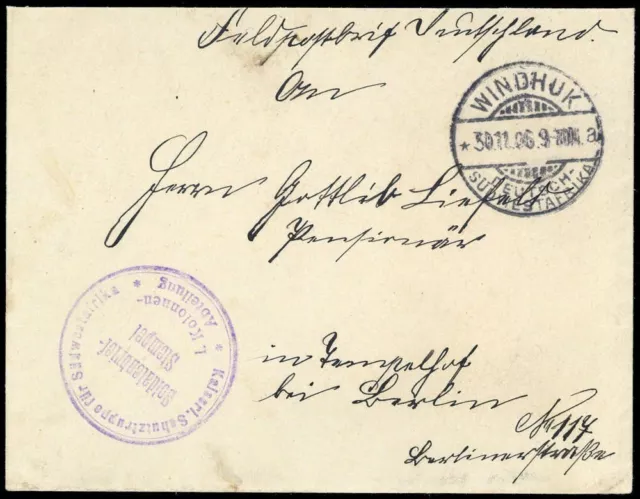 Feldpostbrief Deutschland.
An
WINDHUK
* 30.11.06. 9-10N. a
SÜDWESTAFRIKA
DEUTSCH-
Herrn Gottlieb
Pensionär
* Kaiserl. Schutztruppe für Südwestafrika *
1. Kolonnen-
Abteilung
Soldatenbrief-
Stempel
in Tempelhof
bei Berlin
No 117
Berlinerstraße